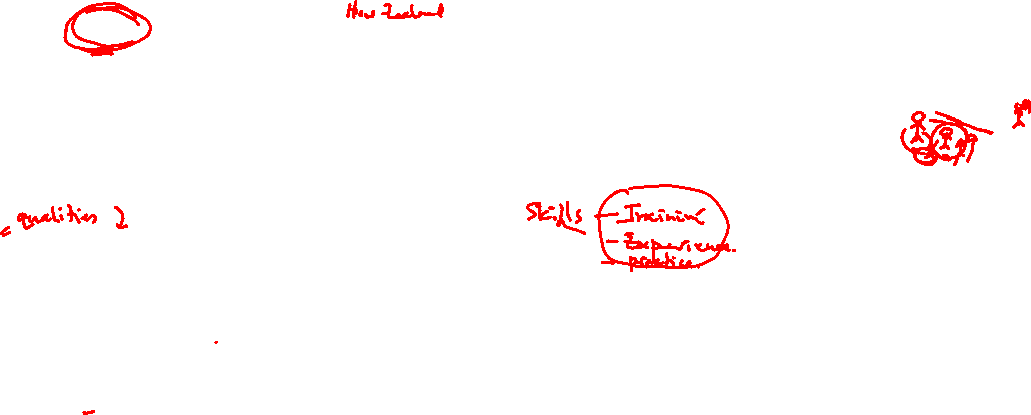 New Zealand
qualities
Skills - Training
- Experience.
- practice.